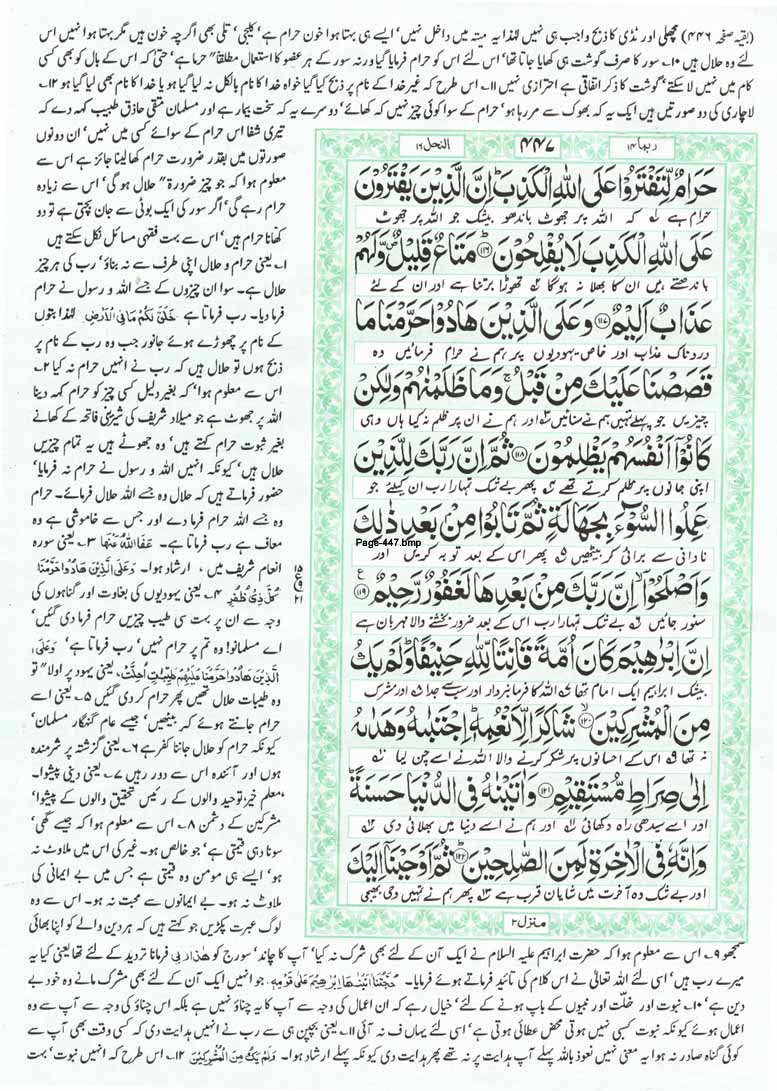 (بقیہ صفحہ ۴۴۶) مچھلی اور ٹڈی کا ذبح واجب ہی نہیں لہٰذا یہ میتہ میں داخل نہیں' ایسے ہی بہتا ہوا خون حرام ہے' کلیجی' تلی بھی اگرچہ خون ہیں مگر بہتا ہوا نہیں اس
لئے وہ حلال ہیں ۱۰۔ سور کا صرف گوشت ہی کھایا جاتا تھا' اس لئے اس کو حرام فرمایا گیا ورنہ سور کے ہر عضو کا استعمال مطلقاً حرما ہے' حتیٰ کہ اس کے بال کو بھی کسی
کام میں نہیں لا سکتے' گوشت کا ذکر اتفاقی ہے احترازی نہیں ۱۱۔ اس طرح کہ غیر خدا کے نام پر ذبح کیا گیا خواہ خدا کا نام بالکل نہ لیا گیا ہو یا خدا کا نام بھی لیا گیا ہو ۱۲۔
لاچاری کی دو صورتیں ہیں ایک یہ کہ بھوک سے مر رہا ہو' حرام کے سوا کوئی چیز نہیں کہ کھائے' دوسرے یہ کہ سخت بیمار ہے اور مسلمان متقی حاذق طبیب کہہ دے کہ
تیری شفا اس حرام کے سوائے کسی میں نہیں' ان دونوں
صورتوں میں بقدر ضرورت حرام کھا لینا جائز ہے اس سے
معلوم ہوا کہ جو چیز ضرورۃً حلال ہو گی' اس سے زیادہ
حرام رہے گی' اگر سور کی ایک بوٹی سے جان بچتی ہے تو دو
کھانا حرام ہیں' اس سے بہت فقہی مسائل نکل سکتے ہیں
۱۔ یعنی حرام و حلال اپنی طرف سے نہ بناؤ' رب کی ہر چیز
حلال ہے۔ سوا ان چیزوں کے جسے اللہ و رسول نے حرام
فرما دیا۔ رب فرماتا ہے خَلَقَ لَكُمْ مَا فِي الْاَرْضِ۔ لہٰذا بتوں
کے نام پر چھوڑے ہوئے جانور جب وہ رب کے نام پر
ذبح ہوں تو حلال ہیں کہ رب نے انہیں حرام نہ کیا ۲۔
اس سے معلوم ہوا' کہ بغیر دلیل کسی چیز کو حرام کہہ دینا
اللہ پر جھوٹ ہے جو میلاد شریف کی شیرینی فاتحہ کے کھانے
بغیر ثبوت حرام کہتے ہیں' وہ جھوٹے ہیں یہ تمام چیزیں
حلال ہیں' کیونکہ انہیں اللہ و رسول نے حرام نہ فرمایا'
حضور فرماتے ہیں کہ حلال وہ جسے اللہ حلال فرمائے۔ حرام
وہ جسے اللہ حرام فرما دے اور جس سے خاموشی ہے وہ
معاف ہے رب فرماتا ہے۔ عَفَا اللّٰهُ عَنْهَا ۳۔ یعنی سورہ
انعام شریف میں' ارشاد ہوا۔ وَعَلَى الَّذِيْنَ هَادُوْا حَرَّمْنَا
كُلَّ ذِيْ ظُفُرٍ ۴۔ یعنی یہودیوں کی بغاوت اور گناہوں کی
وجہ سے ان پر بہت سی طیب چیزیں حرام فرما دی گئیں'
اے مسلمانو! وہ تم پر حرام نہیں' رب فرماتا ہے' وَعَلَى
الَّذِيْنَ هَادُوْا حَرَّمْنَا عَلَيْهِمْ طَيِّبٰتٍ اُحِلَّتْ، یعنی یہود پر اولاً تو
وہ طیبات حلال تھیں پھر حرام کر دی گئیں ۵۔ یعنی اسے
حرام جانتے ہوئے کر بیٹھیں' جیسے عام گنہگار مسلمان'
کیونکہ حرام کو حلال جاننا کفر ہے ۶۔ یعنی گزشتہ پر شرمندہ
ہوں اور آئندہ اس سے دور رہیں ۷۔ یعنی دینی پیشوا۔
معلم خیر توحید والوں کے رئیس تحقیق والوں کے پیشوا'
مشرکین کے دشمن ۸۔ اس سے معلوم ہوا کہ جیسے گھی'
سونا وہی قیمتی ہے' جو خالص ہو۔ غیر کی اس میں ملاوٹ نہ
ہو' ایسے ہی مومن وہ قیمتی ہے جس میں بے ایمانی کی
ملاوٹ نہ ہو۔ بے ایمانوں سے محبت نہ ہو۔ اس سے وہ
لوگ عبرت پکڑیں جو کہتے ہیں کہ ہر دین والے کو اپنا بھائی
ربما ۱۴
۴۴۷
النحل ۱۶
حَرَامٌ لِّتَفْتَرُوْا عَلَى اللّٰهِ الْكَذِبَ ؕ اِنَّ الَّذِيْنَ يَفْتَرُوْنَ
حرام ہے ۱ کہ اللہ پر جھوٹ باندھو بیشک جو اللہ پر جھوٹ
عَلَى اللّٰهِ الْكَذِبَ لَا يُفْلِحُوْنَ ؕ﴿۱۱۶﴾ مَتَاعٌ قَلِيْلٌ ۪ وَّلَهُمْ
باندھتے ہیں ان کا بھلا نہ ہوگا ۲ تھوڑا برتنا ہے اور ان کے لئے
عَذَابٌ اَلِيْمٌ ﴿۱۱۷﴾ وَعَلَى الَّذِيْنَ هَادُوْا حَرَّمْنَا مَا
دردناک عذاب اور خاص یہودیوں پر ہم نے حرام فرمائیں وہ
قَصَصْنَا عَلَيْكَ مِنْ قَبْلُ ۚ وَمَا ظَلَمْنٰهُمْ وَلٰكِنْ
چیزیں جو پہلے تمہیں ہم نے سنائیں ۳ اور ہم نے ان پر ظلم نہ کیا ہاں وہی
كَانُوْۤا اَنْفُسَهُمْ يَظْلِمُوْنَ ﴿۱۱۸﴾ ثُمَّ اِنَّ رَبَّكَ لِلَّذِيْنَ
اپنی جانوں پر ظلم کرتے تھے ۴ پھر بے شک تمہارا رب ان کیلئے جو
عَمِلُوا السُّوْٓءَ بِجَهَالَةٍ ثُمَّ تَابُوْا مِنْ بَعْدِ ذٰلِكَ
Page-447.bmp
نادانی سے برائی کر بیٹھیں ۵ پھر اس کے بعد توبہ کریں اور
وَاَصْلَحُوْۤا ۙ اِنَّ رَبَّكَ مِنْۢ بَعْدِهَا لَغَفُوْرٌ رَّحِيْمٌ ﴿۱۱۹﴾ ع
۱۵
ع
۲۱
سنور جائیں ۶ بے شک تمہارا رب اس کے بعد ضرور بخشنے والا مہربان ہے
اِنَّ اِبْرٰهِيْمَ كَانَ اُمَّةً قَانِتًا لِّلّٰهِ حَنِيْفًا ؕ وَلَمْ يَكُ
بیشک ابراہیم ایک امام تھا ۷ اللہ کا فرمانبردار اور سب سے جدا ۸ اور مشرک
مِنَ الْمُشْرِكِيْنَ ﴿۱۲۰﴾ۙ شَاكِرًا لِّاَنْعُمِهٖ ؕ اِجْتَبٰىهُ وَهَدٰىهُ
نہ تھا ۹ اس کے احسانوں پر شکر کرنے والا اللہ نے اسے چن لیا ۱۰
اِلٰى صِرَاطٍ مُّسْتَقِيْمٍ ﴿۱۲۱﴾ وَاٰتَيْنٰهُ فِي الدُّنْيَا حَسَنَةً ؕ
اور اسے سیدھی راہ دکھائی ۱۱ اور ہم نے اسے دنیا میں بھلائی دی ۱۲
وَاِنَّهٗ فِي الْاٰخِرَةِ لَمِنَ الصّٰلِحِيْنَ ؕ﴿۱۲۲﴾ ثُمَّ اَوْحَيْنَاۤ اِلَيْكَ
اور بے شک وہ آخرت میں شایان قرب ہے ۱۳ پھر ہم نے تمہیں وحی بھیجی
منزل ۳
سمجھو ۹۔ اس سے معلوم ہوا کہ حضرت ابراہیم علیہ السلام نے ایک آن کے لئے بھی شرک نہ کیا' آپ کا چاند' سورج کو هٰذَا رَبِّيْ فرمانا تردید کے لئے تھا یعنی کیا یہ
میرے رب ہیں' اسی لئے اللہ تعالیٰ نے اس کلام کی تائید فرماتے ہوئے فرمایا۔ حُجَّتُنَا اٰتَيْنٰهَا اِبْرٰهِيْمَ عَلٰى قَوْمِهٖ۔ جو انہیں ایک آن کے لئے بھی مشرک مانے وہ خود بے
دین ہے' ۱۰۔ نبوت اور خلّت اور نبیوں کے باپ ہونے کے لئے' خیال رہے کہ ان اعمال کی وجہ سے آپ کا یہ چناؤ نہیں ہے بلکہ اس چناؤ کی وجہ سے آپ سے وہ
اعمال ہوئے کیونکہ نبوت کسبی نہیں ہوتی محض عطائی ہوتی ہے' اسی لئے یہاں ف نہ آئی ۱۱۔ یعنی بچپن ہی سے رب نے انہیں ہدایت دی کہ کسی وقت بھی آپ سے
کوئی گناہ صادر نہ ہوا یہ معنی نہیں نعوذ باللہ پہلے آپ ہدایت پر نہ تھے پھر ہدایت دی کیونکہ پہلے ارشاد ہوا۔ وَلَمْ يَكُ مِنَ الْمُشْرِكِيْنَ ۱۲۔ اس طرح کہ انہیں نبوت' بہت